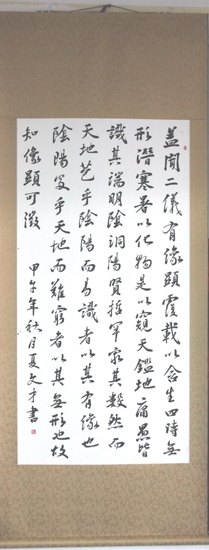 盖聞二儀有像顯覆載以含生四時無
形潛寒暑以化物是以窺天鑑地庸愚皆
識其端明陰洞陽賢哲罕窮其數然而
天地苞乎陰陽而易識者以其有像也
陰陽處乎天地而難窮者以其無形也故
知像顯可徵 甲午年秋月夏文才書